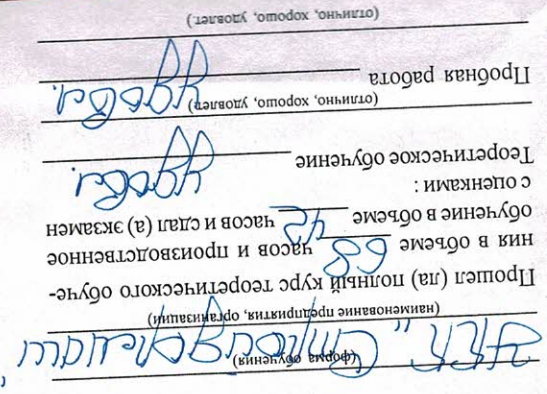 (форма обучения)
УКК
(наименование предприятия, организации)
Прошел (ла) полный курс теоретического обуче-
ния в объеме 68 часов и производственное
обучение в объеме часов и сдал (а) экзамен
с оценками :
Теоретическое обучение удовл.
(отлично, хорошо, удовлет)
Пробная работа удовл.
(отлично, хорошо, удовлет.)